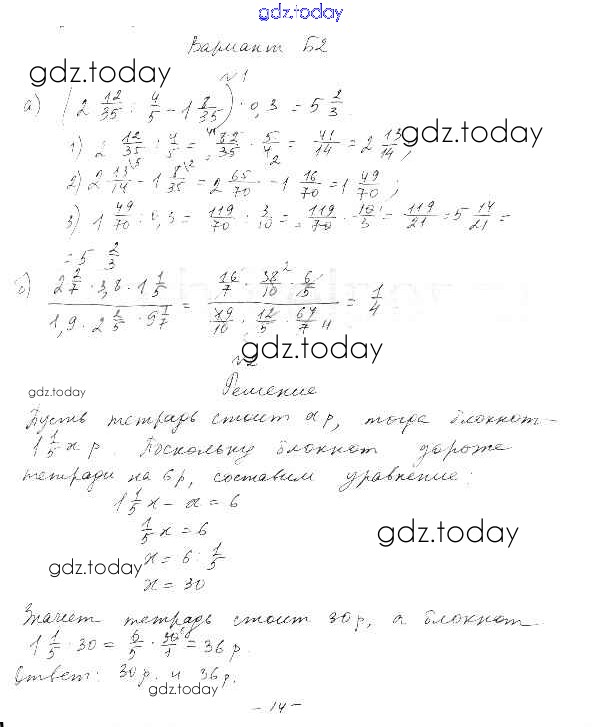 gdz.today
Вариант Б2
gdz.today
№1
а) (2 12/35 : 4/5 - 1 8/35) : 0,3 = 5 2/3.
gdz.today
1) 2 12/35 : 4/5 = 82/35 · 5/4 = 41/14 = 2 13/14;
2) 2 13/14 - 1 8/35 = 2 65/70 - 1 16/70 = 1 49/70;
3) 1 49/70 : 0,3 = 119/70 : 3/10 = 119/70 · 10/3 = 119/21 = 5 14/21 =
= 5 2/3
б) (2 2/7 · 3,8 · 1 1/5) / (1,9 · 2 2/5 · 9 1/7) = (16/7 · 38/10 · 6/5) / (19/10 · 12/5 · 64/7) = 1/4
gdz.today
№2
gdz.today
Решение
Пусть тетрадь стоит x р, тогда блокнот -
1 1/5 x р. Поскольку блокнот дороже
тетради на 6р, составим уравнение:
1 1/5 x - x = 6
1/5 x = 6
gdz.today
x = 6 : 1/5
gdz.today
x = 30
Значит тетрадь стоит 30р, а блокнот
1 1/5 · 30 = 6/5 · 30/1 = 36 р.
Ответ: 30р. и 36р.
gdz.today
- 14 -